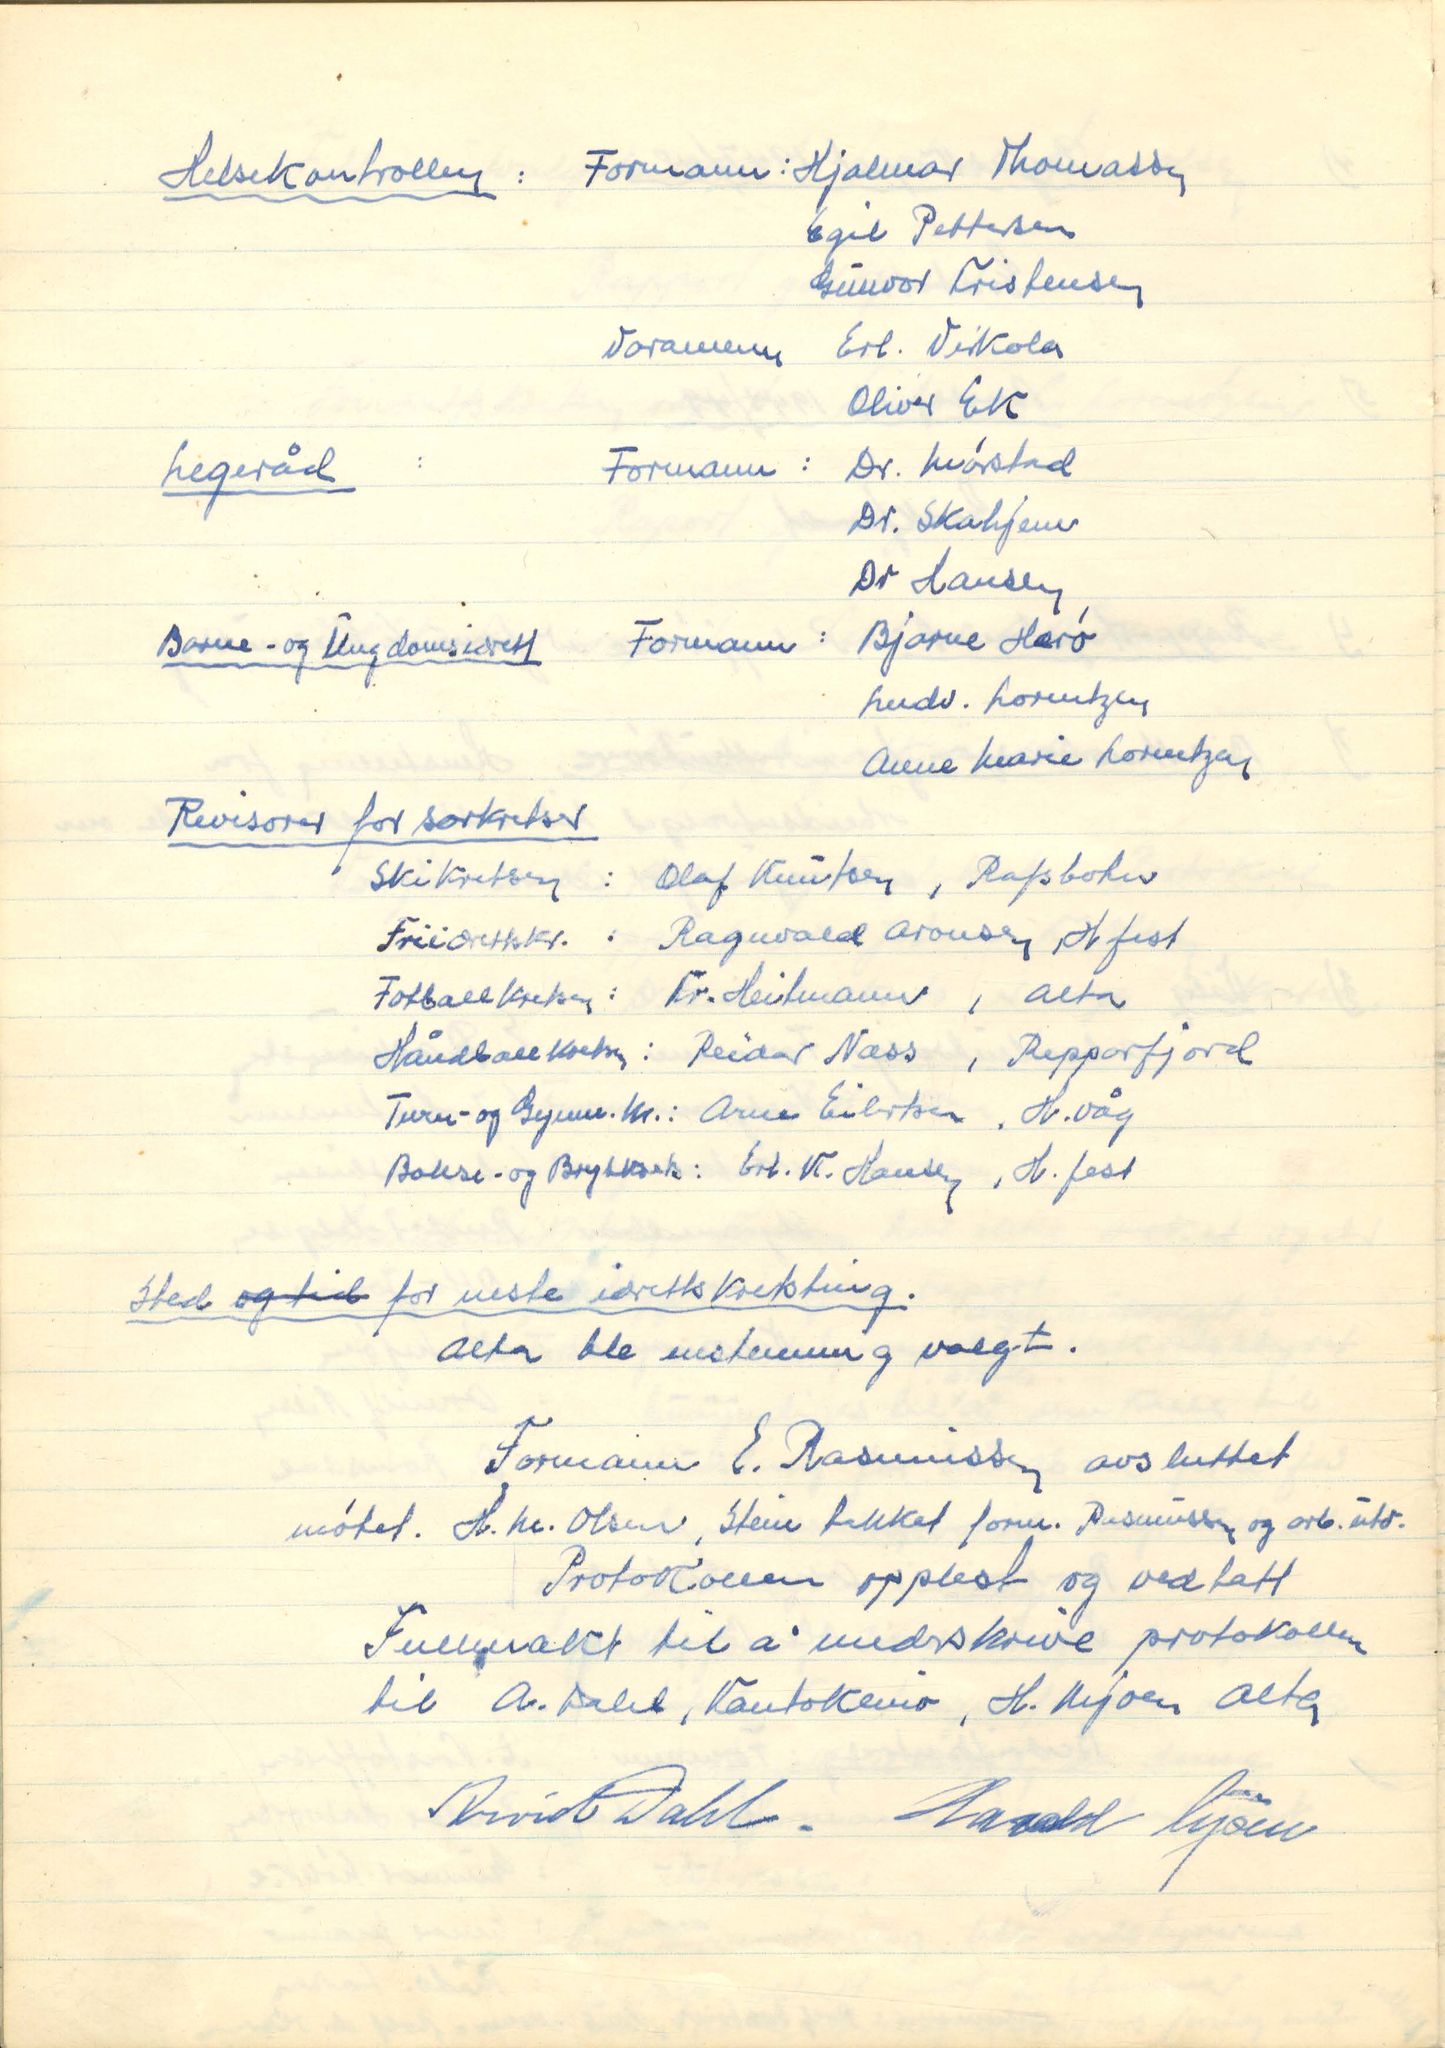 Helsekontrollen : Formann : Hjalmar Thomassen
Egil Pettersen
Gunvor Kristensen
Varamenn Erl. Virkola
Oliver Ek
Legeråd : Formann : Dr. Mørstad
Dr. Skahjem
Dr Hansen
Barne- og Ungdomsidrett Formann : Bjarne Herø
Ludv. Lorentzen
Anne Marie Lorentzen
Revisorer for særkretser
Skikretsen : Olaf Knutsen, Rafsbotn
Friidrettskr. : Ragnvald Aronsen, H.fest
Fotballkretsen : Kr. Heitmann, Alta
Håndballkretsen : Reidar Næss, Repparfjord
Turn- og Gymn. kr. : Arne Eilertsen, H.våg
Bokse- og Brytekrets : Erl. K. Hansen, H.fest
Sted og tid for neste idrettskretsting.
Alta ble enstemmig valgt.
Formann E. Rasmussen avsluttet
møtet. H. M. Olsen, Stein takket form. Rasmussen og arb. utv.
Protokollen opplest og vedtatt
Fullmakt til å underskrive protokollen
til A. Dahl, Kautokeino, H. Mjøen Alta
Arvid Dahl. Harald Mjøen